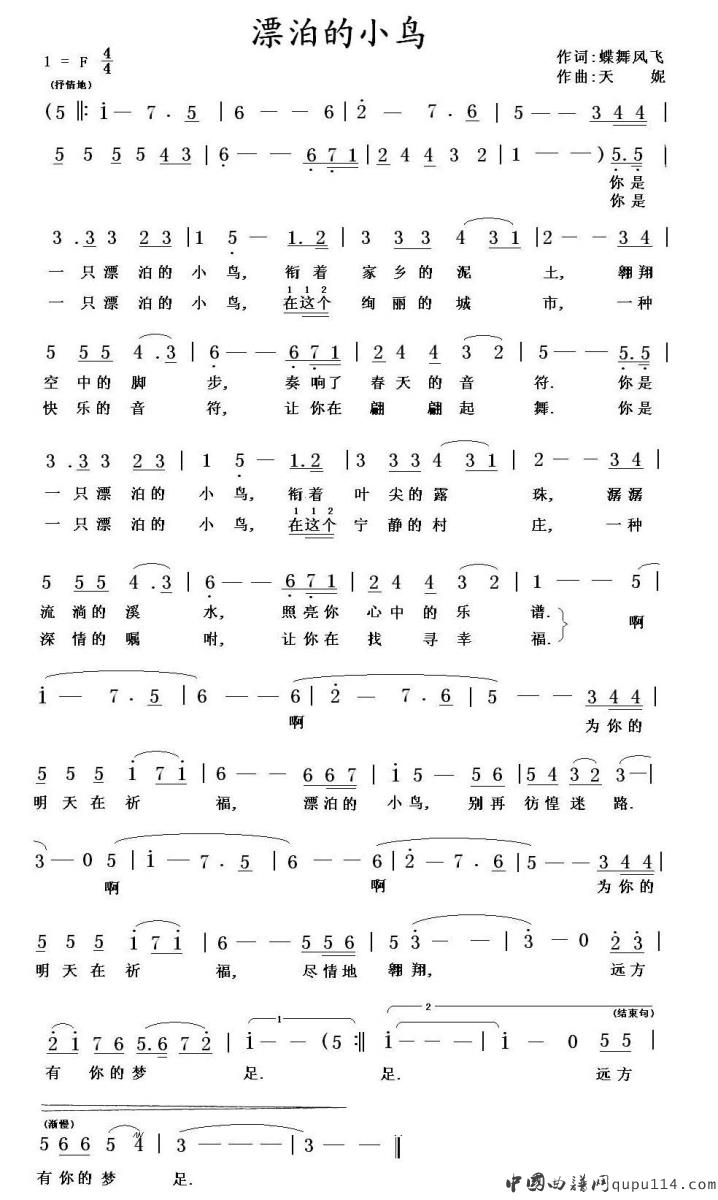 漂泊的小鸟
1 = F 4/4
作词:蝶舞风飞
作曲:天 妮
(抒情地)
(5 ‖: i — 7 . 5 | 6 — — 6 | 2 — 7 . 6 | 5 — — 3 4 4 |
5 5 5 5 4 3 | 6 — — 6 7 1 | 2 4 4 3 2 | 1 — — ) 5. 5 |
你是
你是
3 . 3 3 2 3 | 1 5 — 1. 2 | 3 3 3 3 4 3 1 | 2 — — 3 4 |
一 只 漂 泊 的 小 鸟, 衔 着 家 乡 的 泥 土, 翱 翔
1 1 2
一 只 漂 泊 的 小 鸟, 在这个 绚 丽 的 城 市, 一 种
5 5 5 4 . 3 | 6 — — 6 7 1 | 2 4 4 3 2 | 5 — — 5. 5 |
空 中 的 脚 步, 奏 响 了 春 天 的 音 符. 你 是
快 乐 的 音 符, 让 你 在 翩 翩 起 舞. 你 是
3 . 3 3 2 3 | 1 5 — 1. 2 | 3 3 3 4 3 1 | 2 — — 3 4 |
一 只 漂 泊 的 小 鸟, 衔 着 叶 尖 的 露 珠, 潺 潺
1 1 2
一 只 漂 泊 的 小 鸟, 在这个 宁 静 的 村 庄, 一 种
5 5 5 4 . 3 | 6 — — 6 7 1 | 2 4 4 3 2 | 1 — — 5 |
流 淌 的 溪 水, 照 亮 你 心 中 的 乐 谱. 啊
深 情 的 嘱 咐, 让 你 在 找 寻 幸 福.
i — 7 . 5 | 6 — — 6 | 2 — 7 . 6 | 5 — — 3 4 4 |
啊 为 你 的
5 5 5 i 7 i | 6 — — 6 6 7 | i 5 — 5 6 | 5 4 3 2 3 — |
明 天 在 祈 福, 漂 泊 的 小 鸟, 别 再 彷 徨 迷 路.
3 — 0 5 | i — 7 . 5 | 6 — — 6 | 2 — 7 . 6 | 5 — — 3 4 4 |
啊 啊 为 你 的
5 5 5 i 7 i | 6 — — 5 5 6 | 5 3 — — | 3 — 0 2 3 |
明 天 在 祈 福, 尽 情 地 翱 翔, 远 方
1 2 (结束句)
2 i 7 6 5.6 7 2 | i — — (5 :‖ i — — — | i — 0 5 5 |
有 你 的 梦 足. 足. 远 方
(渐慢)
5 6 6 5 4 | 3 — — — | 3 — — ‖
有 你 的 梦 足.
中国曲谱网qupu114.com